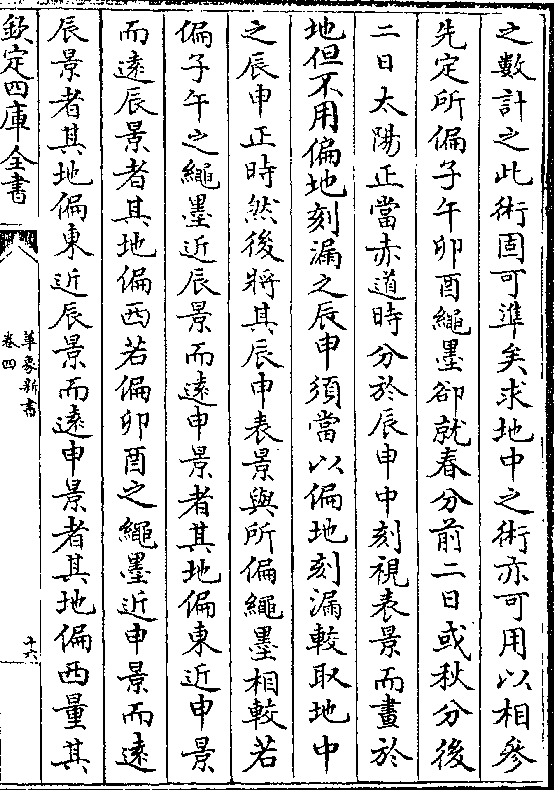 之數計之此術固可準矣求地中之術亦可用以相參
先定所偏子午卯酉繩墨卻就春分前二日或秋分後
二日太陽正當赤道時分於辰申中刻視表景而畫於
地但不用偏地刻漏之辰申須當以偏地刻漏較取地中
之辰申正時然後將其辰申表景與所偏繩墨相較若
偏子午之繩墨近辰景而遠申景者其地偏東近申景
而遠辰景者其地偏西若偏卯酉之繩墨近申景而遠
辰景者其地偏東近辰景而遠申景者其地偏西量其
欽定四庫全書
革象新書
卷四
十六